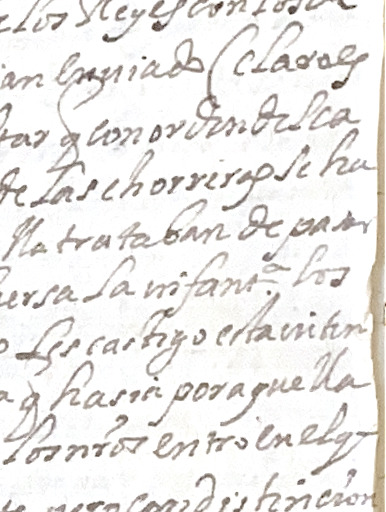 elos Reyes con los de
ian enuiado (claro es
tar q con orden del ca
de las chorreras se ha
lla trataban de pasar
bersa la infantª. los
o les castigo esta
a q hasia por aquella
los nrõs entro en el q
distincion